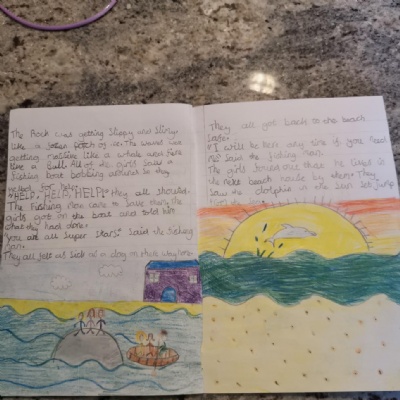 The Rock was getting Slippy and Slimy
like a patch of ice. The waves were
getting massive like a whale was
like a bull. All of the girls saw a
Fishing boat bobbing so they
for help.
"HELP, HELP, HELP!" they all shouted.
The Fishing man came to save them the
girls got on the boat and told him
what they had done.
"You are all Super Stars" Said the fishing
man.
They all felt as sick as a dog on their way home.
They all got back to the beach
Safe.
"I will be here any time if you need
me" said the fishing man.
The girls found out that he lived in
the next beach house by them. They
Saw the dolphin in the Sun Set Jump